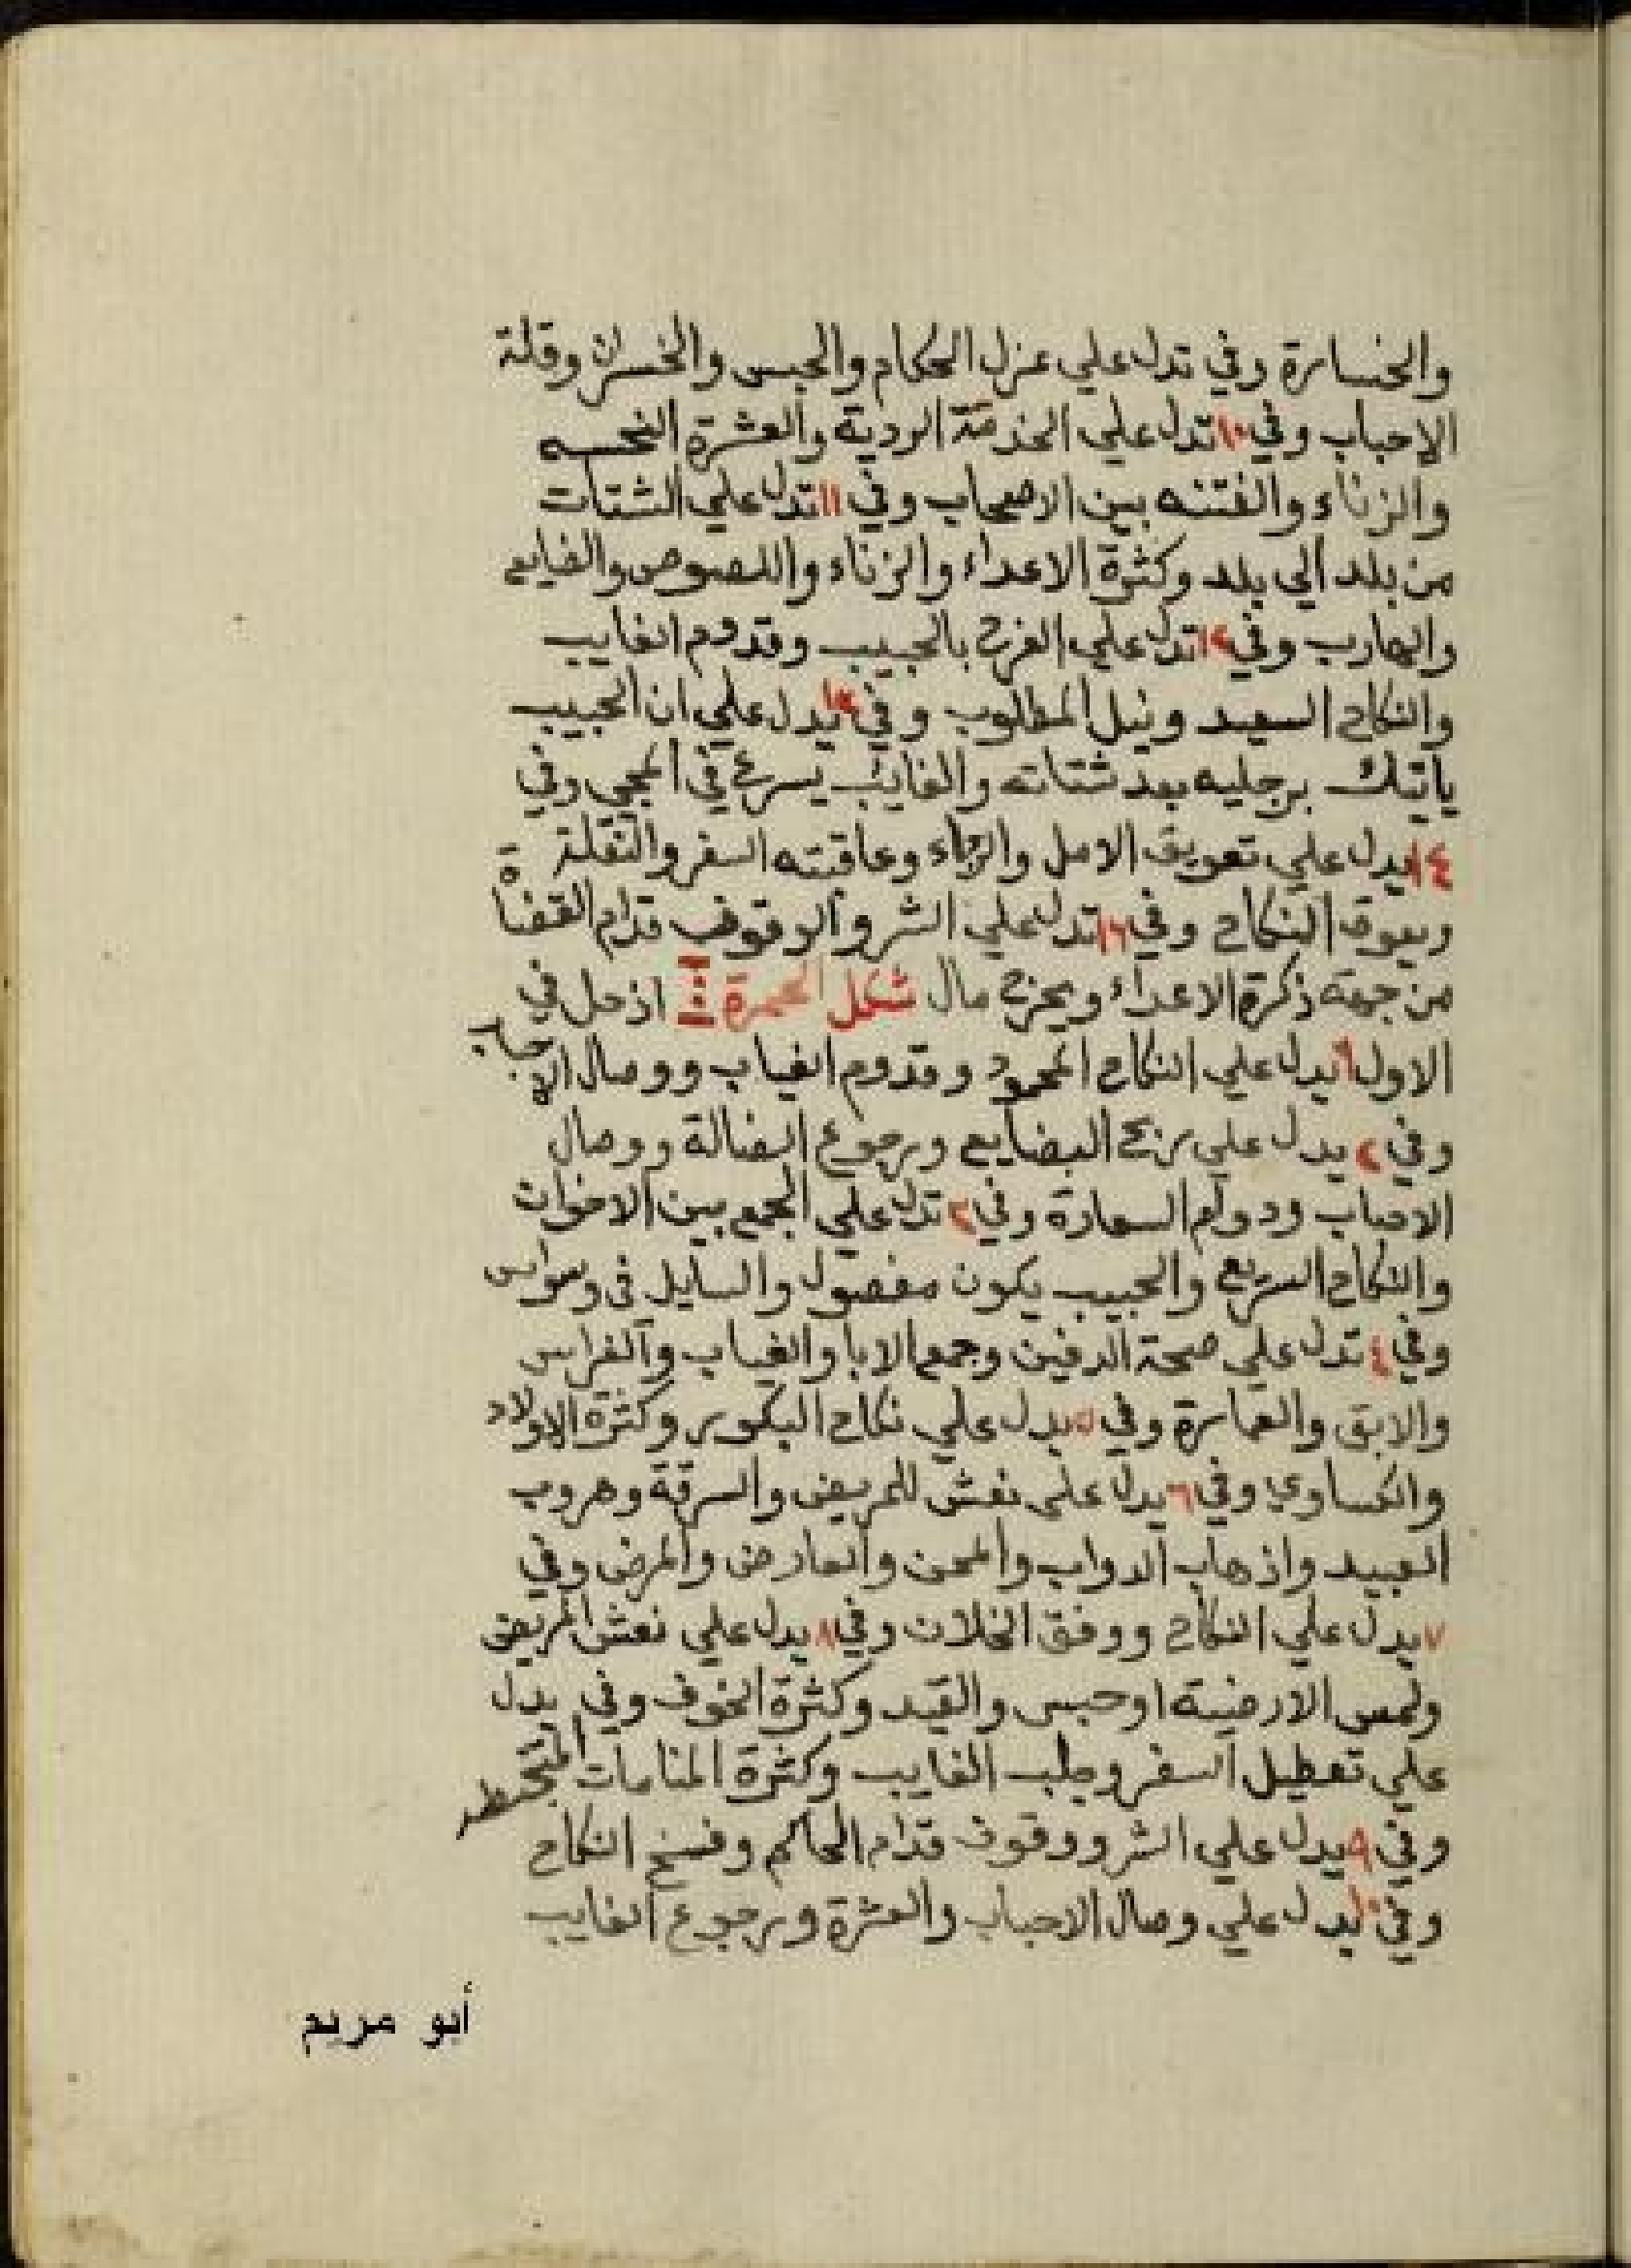 والخسارة وفي تدل علي عزل الحكام والحبس والخسران وقلة
الاحباب وفي ١٠ تدل علي الخدمة الردية والعشرة النحسه
والزناء والفتنه بين الاصحاب وفي ١١ تدل علي الشتات
من بلد الي بلد وكثرة الاعداء والزناء واللصوص والضايع
والهارب وفي ١٢ تدل علي الفرح بالحبيب وقدوم الغايب
والنكاح السعيد ونيل المطلوب وفي ١٣ يدل علي ان الحبيب
ياتيك برجليه بعد شتاته والغايب يسرع في المجي وفي
١٤ يدل علي تعويق الامل والرجاء وعاقبته السفر والنقلة
ويعوق النكاح وفي ١٦ تدل علي الشر والوقوف قدام القضاة
من جهة ذكرة الاعداء ويخرج مال شكل الحمرة اذ حل في
الاول يدل علي النكاح المحمود وقدوم الغياب ووصال الاحباب
وفي ٢ يدل علي ربح البضايع ورجوع الضالة ووصال
الاحباب ودوام السعادة وفي ٣ تدل علي الجمع بين الاخوان
والنكاح السريع والحبيب يكون مفصول والسايل في وسواس
وفي ٤ تدل علي صحة الدفين وجمع الابا والغياب والغراس
والابق والعمارة وفي ٥ يدل علي نكاح البكور وكثرة الاولاد
والكساوي وفي ٦ يدل علي نعش للمريض والسرقة وهروب
العبيد واذهاب الدواب والمحن والعارض والمرض وفي
٧ يدل علي النكاح ووفق الخلان وفي ٨ يدل علي نعش المريض
ولمس الارضية او حبس والقيد وكثرة الخوف وفي يدل
علي تعطيل السفر وطلب الغايب وكثرة المنامات
وفي ٩ يدل علي الشر ووقوف قدام الحاكم وفسخ النكاح
وفي ١٠ يدل علي وصال الاحباب والعشرة ورجوع الغايب
أبو مريم